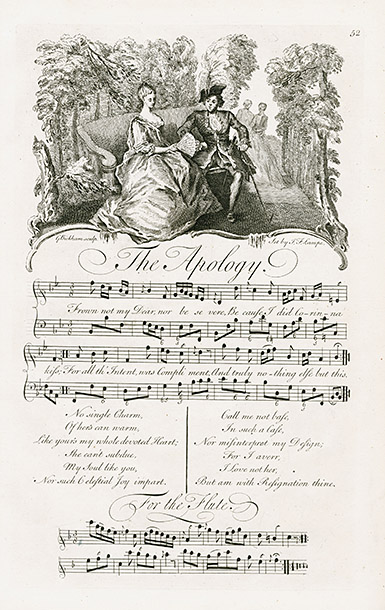 52
G. Bickham sculp.
Set by J. F. Lampe
The Apology.
Frown not my Dear, nor be se vere, Be cause I did Co-rin-na
kiss; For all th' Intent, was Compliment, And truly no-thing else but this.
No single Charm,
Of hers can warm,
Like yours my whole devoted Heart;
She can't subdue,
My Soul like you,
Nor such Celestial Joy impart.
Call me not base,
In such a Case,
Nor misinterpret my Design;
For I averr,
I Love not her,
But am with Resignation thine.
For the Flute.